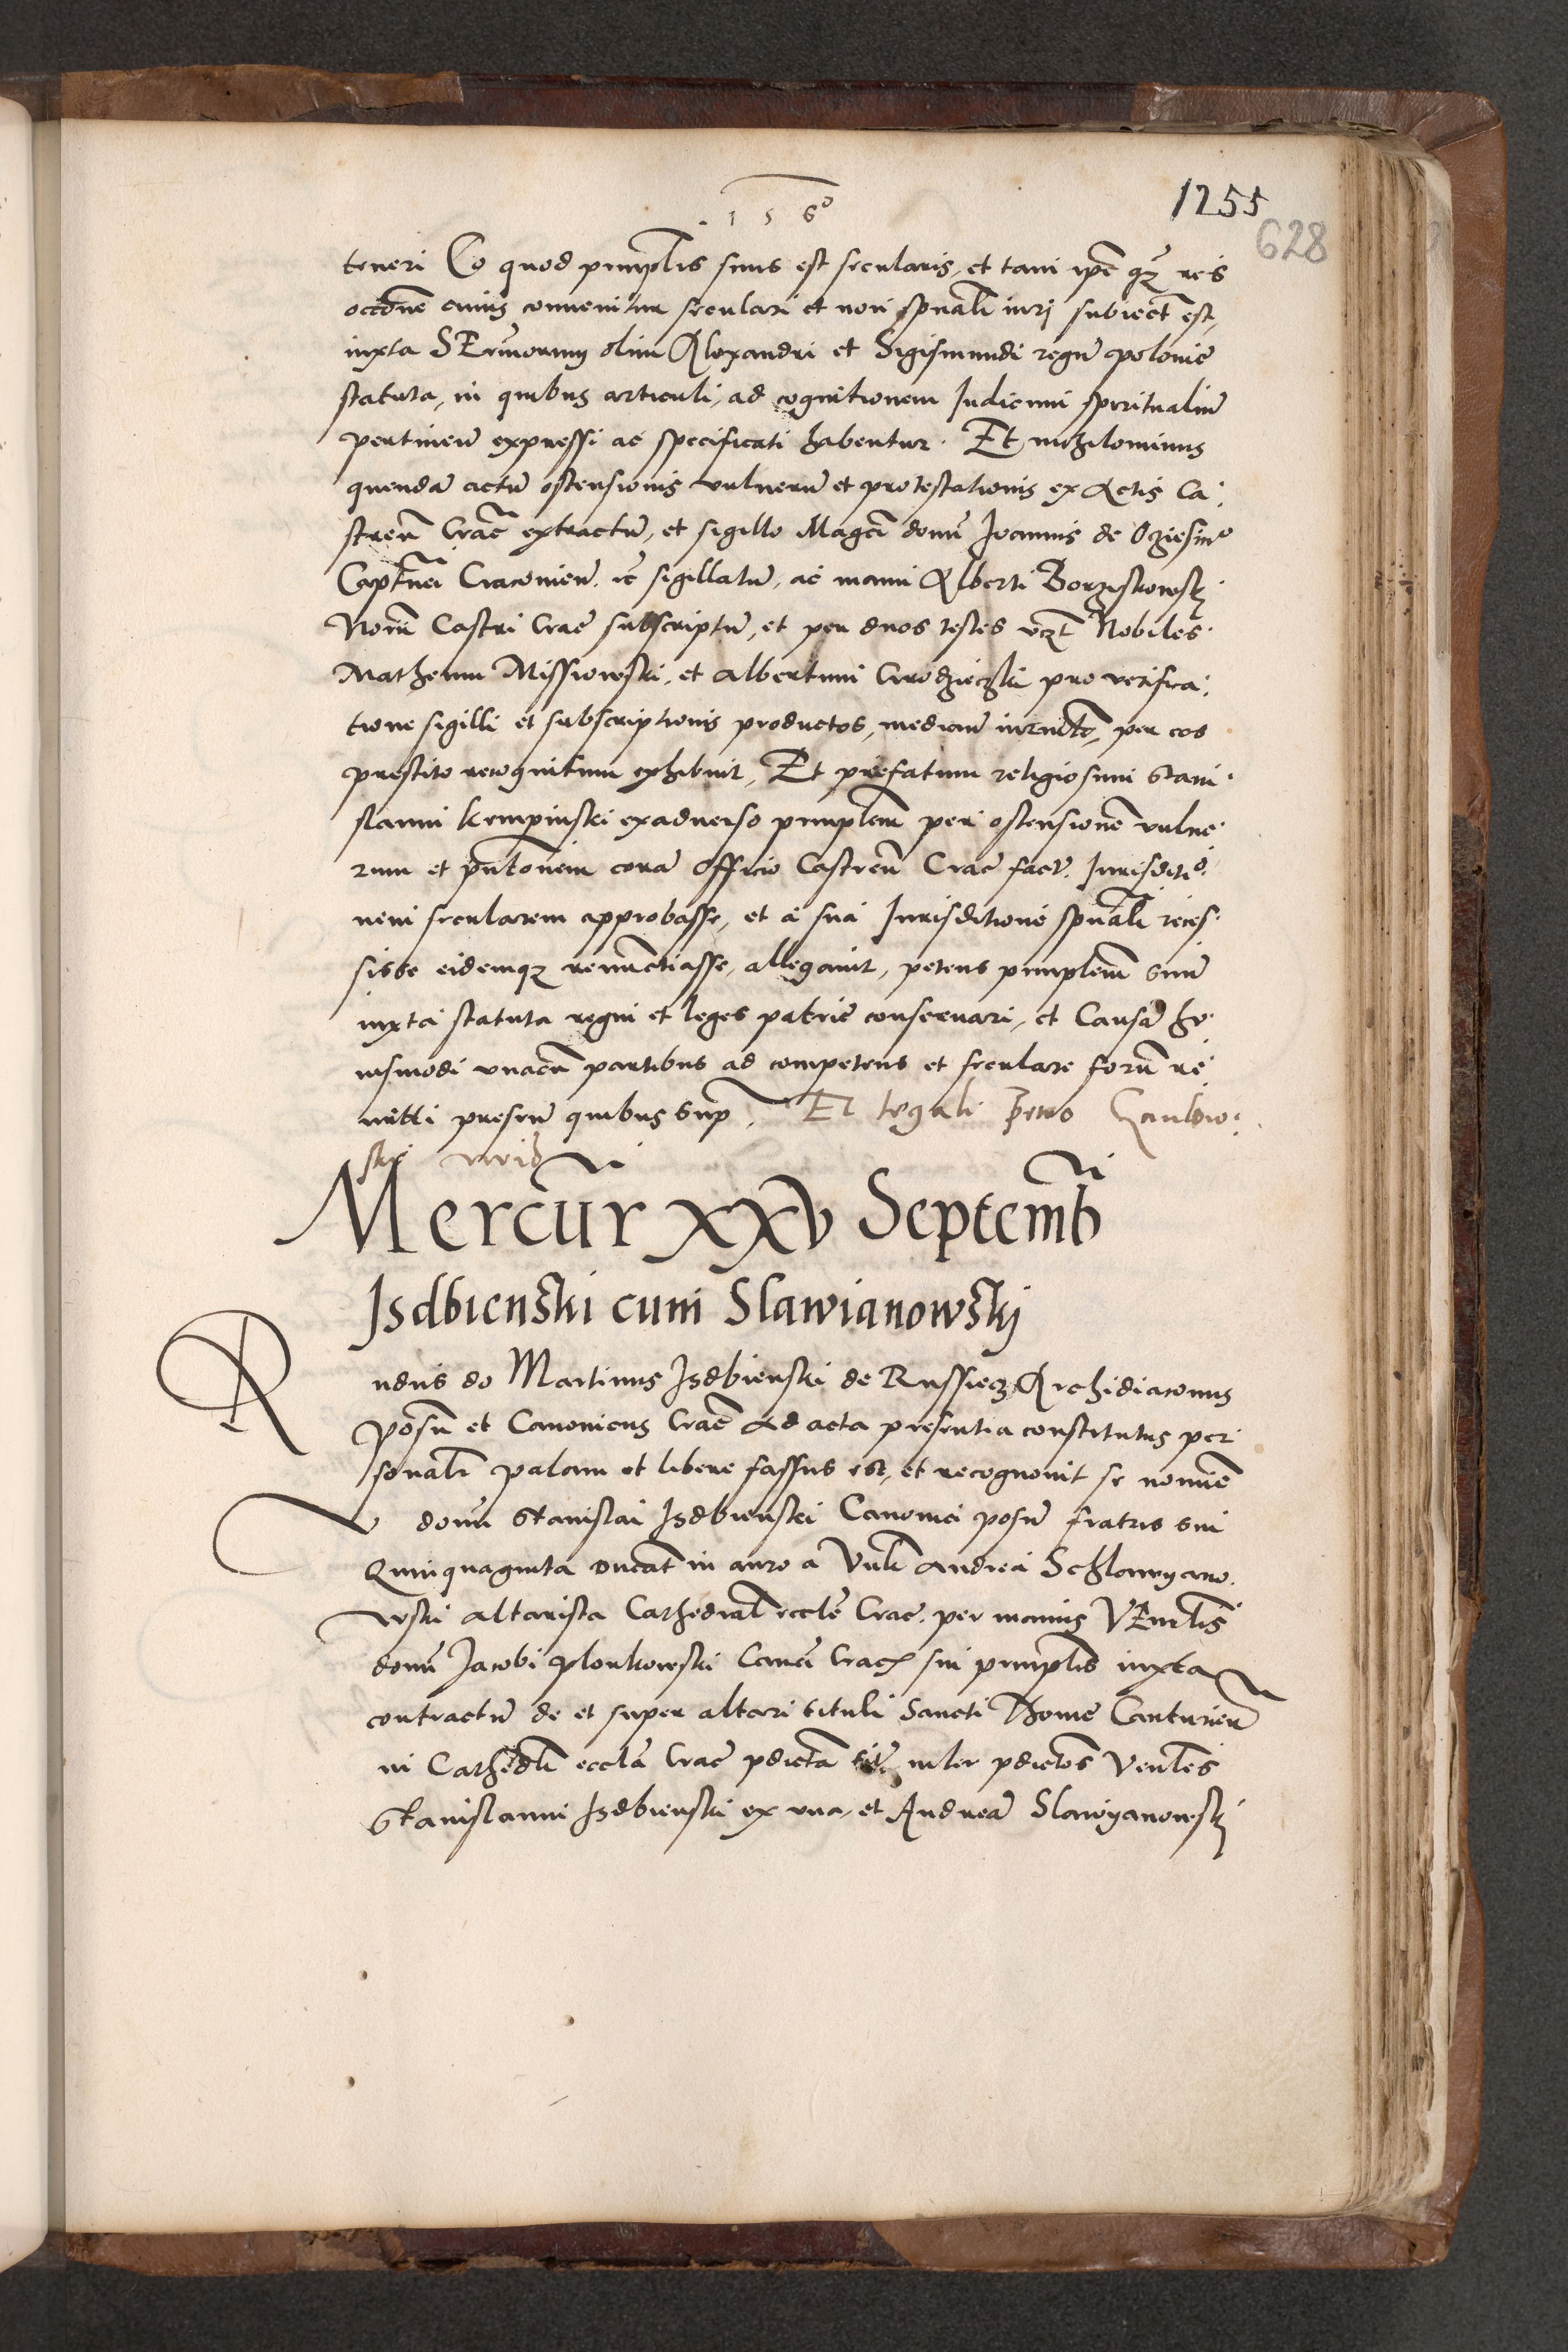 1560
1255
628
teneri Eo quod prinplis suus est secularis, et tam ipe qz res
occone cuius convenitur seculari et non spuali iuri subiect est,
iuxta SErmorum olim Alexandri et Sigismundi regu polonie
statuta, in quibus articuli, ad cognitionem Iudicum spiritualiu
pertineñ expressi ac specificati habentur. Et nihilominus
quenda actu ostensionis vulneru et protestationis ex Actis Ca
streñ Crac extractu, et sigillo Magci domi Joannis de Ocziesino
Captnei Cracovieñ. sigillatu, ac manu Alberti Borziskowskj
Norii Castri Crac subscriptu, et per duos testes vczt Nobiles
Matheum Missiowski, et Albertum Grodzieczki pro verifica
tione sigilli et subscriptionis productos, mediañ iurato, per eos
prestito recognitum exhibuit, Et prefatum religiosum Stani
slaum Kempinski exadverso prinplem per ostensione vulne
rum et pntonem cora officio Castreñ Crac fact. Iurisditio
nem secularem approbasse, et a sua Iurisditione spuali reces
sisse eidemqz renunctiasse, allegavit, petens prinplem suu
iuxta statuta regni et leges patrie conservari, et Causa hu
iusmodi unacu partibus ad competens et seculare foru re
mitti preseñ quibus sup. Et legali Petro
ski
Mercurii XXV Septembri
Isdbienski cum Slawianowskj
Rndus do Martinus Isdbienski de Russiecz Archidiaconus
Posñ et Canonicus Crac Ad acta presentia constitutus per
sonalr palam et libere fassus est, et recognovit se nomie
domi Stanislai Isdbienski Canonici posñ fratris sui
Quinquaginta ducat in auro a Vnli Andrea Schlawyano
wski altarista Cathedral eccle Crac. per manus VEnrlis
domi Jacobi Plonkowski Canci Crac sui prinplis iuxta
contractu de et super altari tituli Sancti Thome Cantuarieñ
in Cathedli eccla Crac pdicta sit. inter pdictos Venles
Stanislaum Isdbienski ex una, et Andrea Slawyanowskj